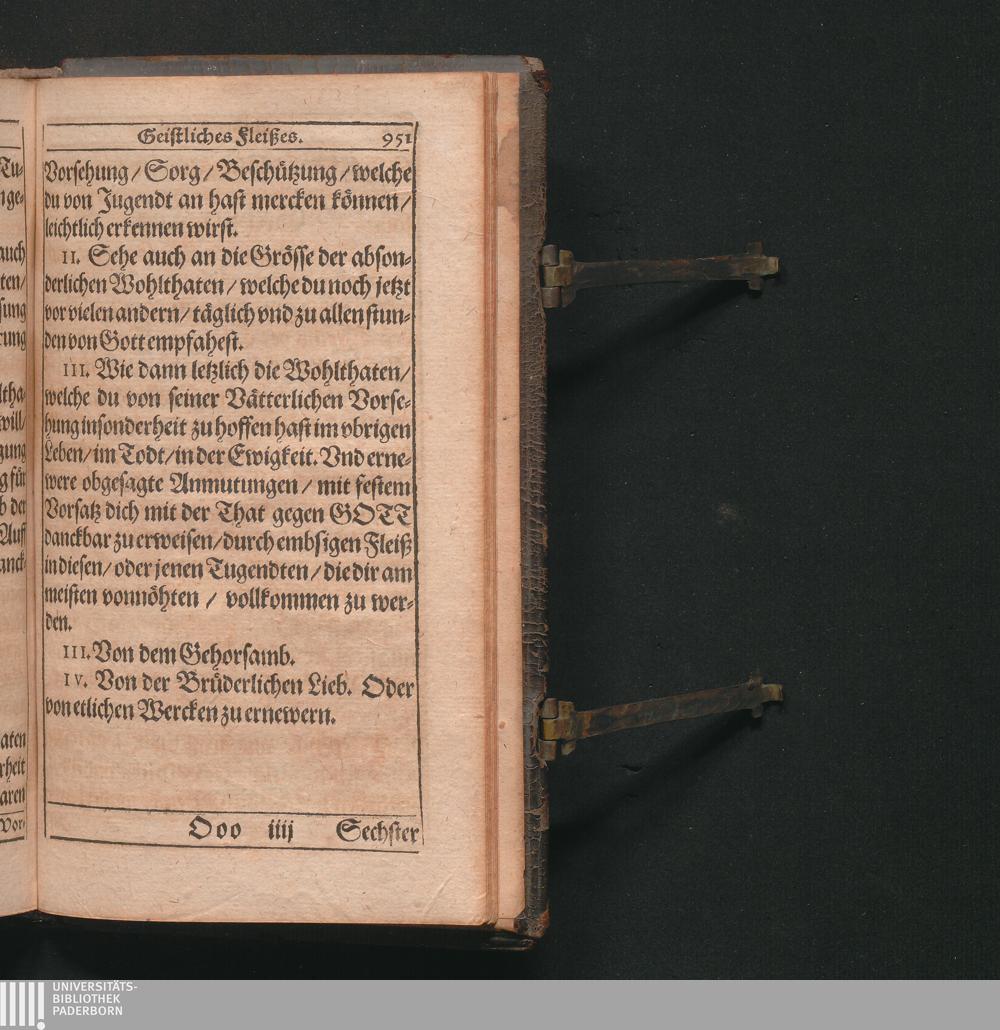 Geistliches Fleißes. 951
Vorsehung / Sorg / Beschützung / welche
du von Jugendt an hast mercken können /
leichtlich erkennen wirst.
II. Sehe auch an die Grösse der abson-
derlichen Wohlthaten / welche du noch jetzt
vor vielen andern / täglich vnd zu allen stun-
den von Gott empfahest.
III. Wie dann letzlich die Wohlthaten /
welche du von seiner Vätterlichen Vorse-
hung insonderheit zu hoffen hast im vbrigen
Leben / im Todt / in der Ewigkeit. Vnd erne-
were obgesagte Anmutungen / mit festem
Vorsatz dich mit der That gegen GOTT
danckbar zu erweisen / durch embsigen Fleiß
in diesen / oder jenen Tugendten / die dir am
meisten vonnöhten / vollkommen zu wer-
den.
III. Von dem Gehorsamb.
IV. Von der Brüderlichen Lieb. Oder
von etlichen Wercken zu ernewern.
Ooo iiij Sechster
UNIVERSITÄTS-
BIBLIOTHEK
PADERBORN